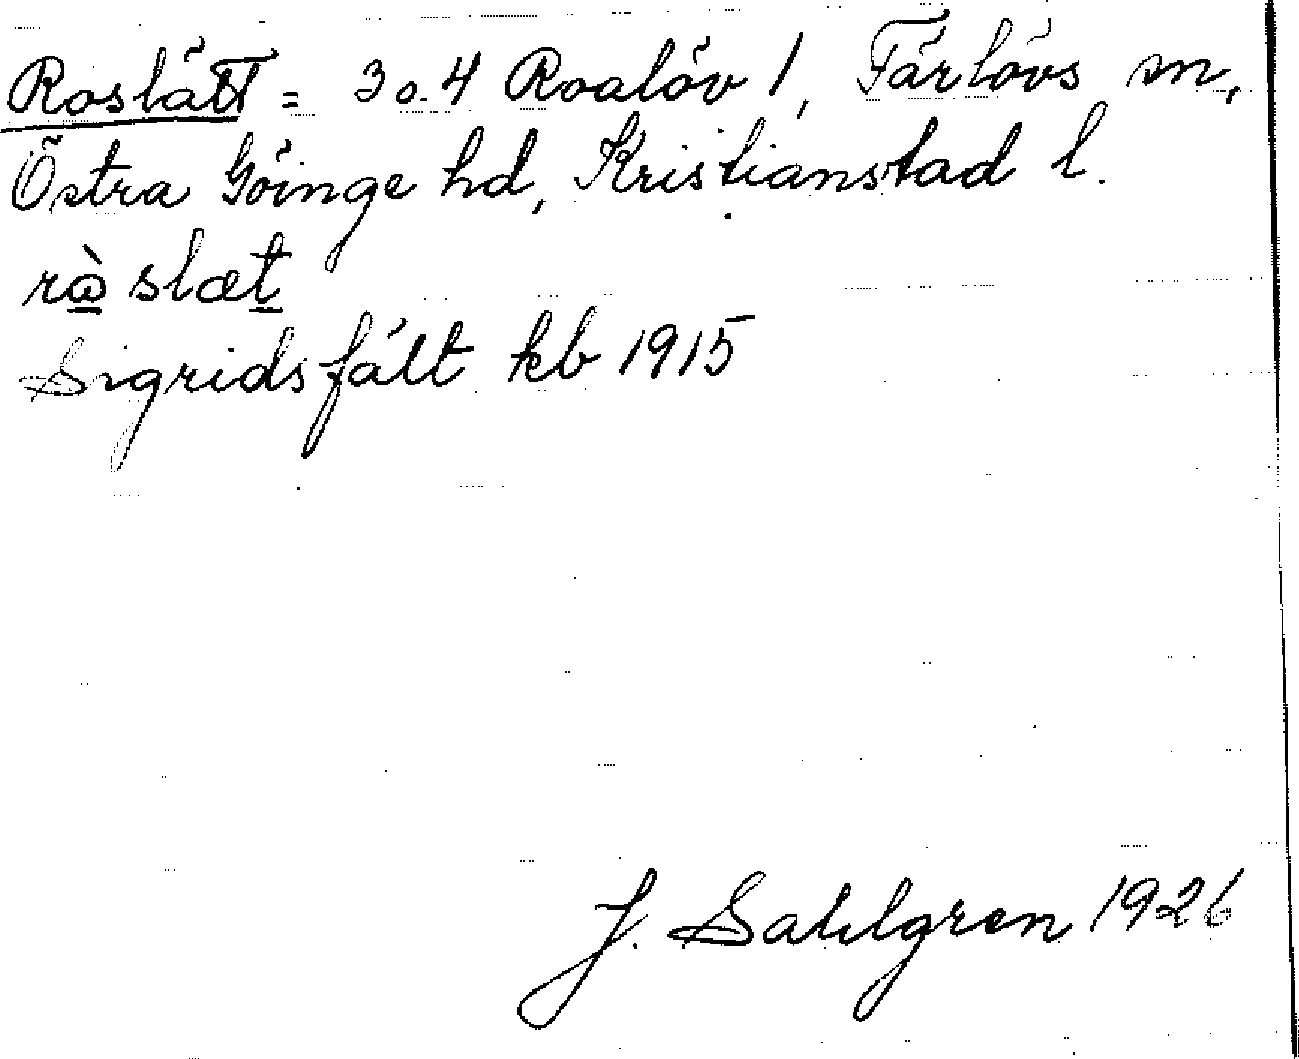 Roslätt = 3 o. 4 Roalöv 1, Färlövs sn,
Östra Göinge hd, Kristianstad l.
rò̲slæt̲
Sigridsfält kb 1915
J. Sahlgren 1926